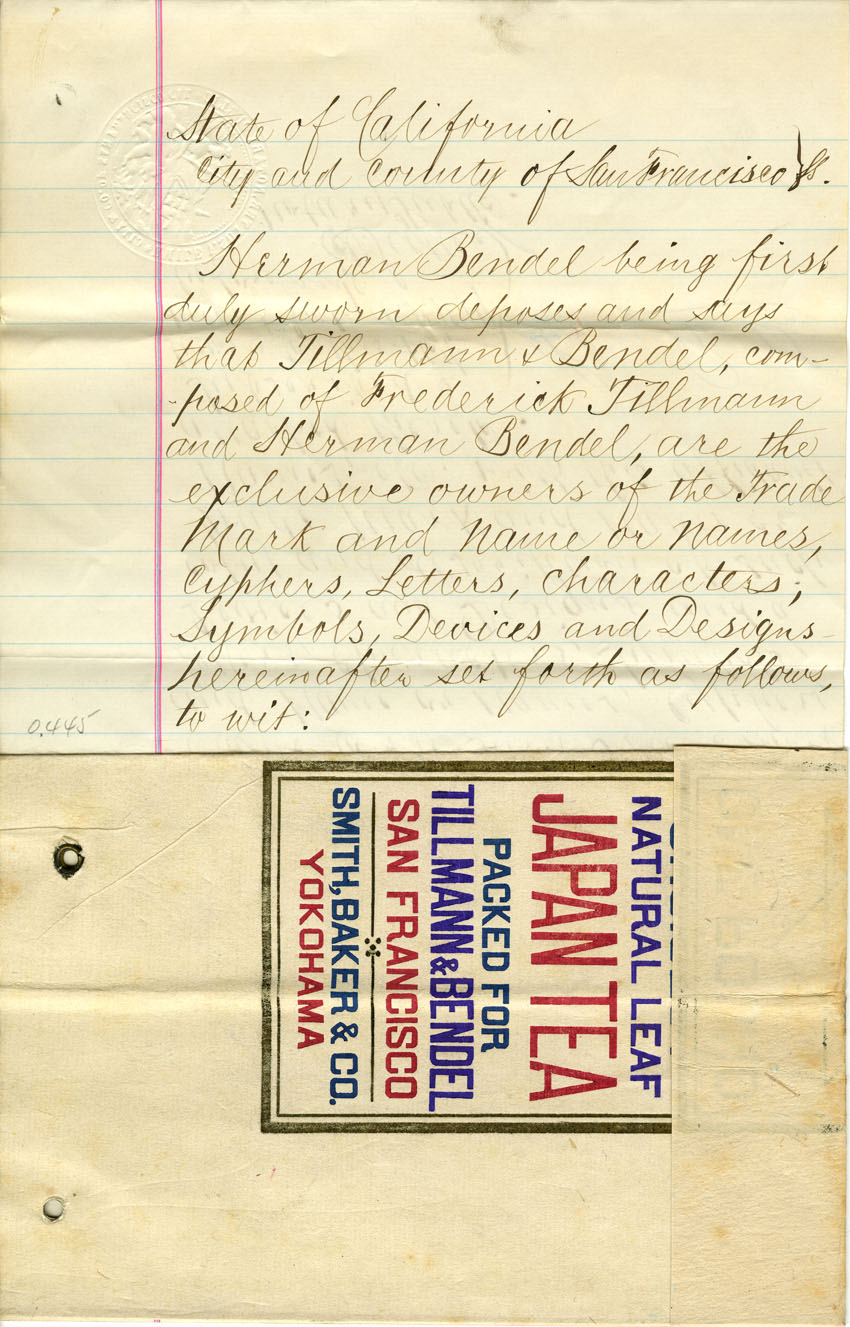 State of California
City and County of San Francisco } ss.
Herman Bendel being first
duly sworn deposes and says
that Tillmann & Bendel, com-
-posed of Frederick Tillmann
and Herman Bendel, are the
exclusive owners of the Trade
Mark and Name or Names,
Cyphers, Letters, Characters,
Symbols, Devices and Designs
hereinafter set forth as follows,
to wit:
0.445
NATURAL LEAF
JAPAN TEA
PACKED FOR
TILLMANN & BENDEL
SAN FRANCISCO
SMITH, BAKER & CO.
YOKOHAMA